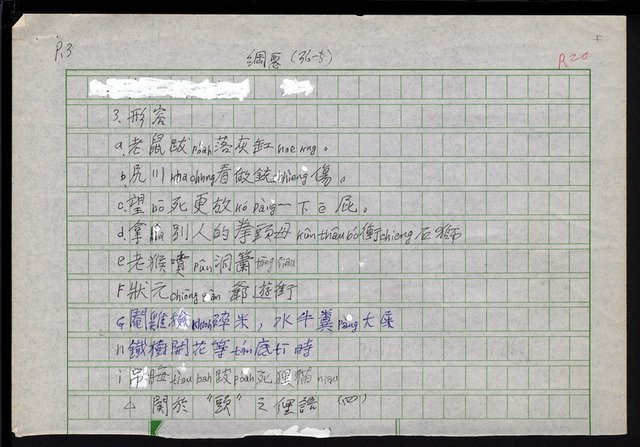 P.3
綱要 (36-5)
P.20
3. 形容
a. 老鼠跋 poah 落灰缸 hoe kng。
b. 尻川 kha chhng 看做銃 chhèng 傷。
c. 望 bō 死更放 kó pàng 一下 ē 屁。
d. 拿 別人的拳頭母 kûn thâu bó 衝 chieng 石獅
e. 老猴噴 pûn 洞簫 tōng siau
F 狀元 chiōng 遊街
G 鬪雞撿 khioh 碎米，水牛糞 大
h 鐵樹開花等 tán 底 時
i 吊脢 tiàu bah 跋 poah 死狸貓 niau
4 關於“頭”之俚語 (四)